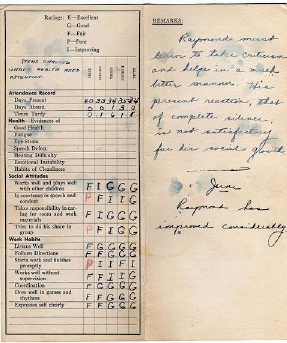 Ratings: E—Excellent
G—Good
F—Fair
P—Poor
I—Improving
ITEMS CHECKED
UNDER HEALTH NEED
ATTENTION
Attendance Record
Days Present
Days Absent
Times Tardy
Health—Evidences of
Good Health
Fatigue
Eye Strain
Speech Defect
Hearing Difficulty
Emotional Instability
Habits of Cleanliness
Social Attitudes
Works well and plays
with other children F I G G G
Is courteous in speech and
conduct P F I I G
Takes responsibility in car-
ing for room and work
materials F F I G G
Tries to do his share in
group P F I G G
Work Habits
Listens Well F G G G G
Follows Directions F F G G G
Starts work and finishes
promptly P I I F I
Works well without
supervision F F I I G
Coordination G G G G
Does well in games and
rhythms F F G G G
Expresses self clearly F F G G G
REMARKS:
Raymond must
learn to take criticism
and helps in a much
better manner. His
present reaction, that
of complete silence,
is not satisfactory
for his social growth
June
Raymond has
improved considerably